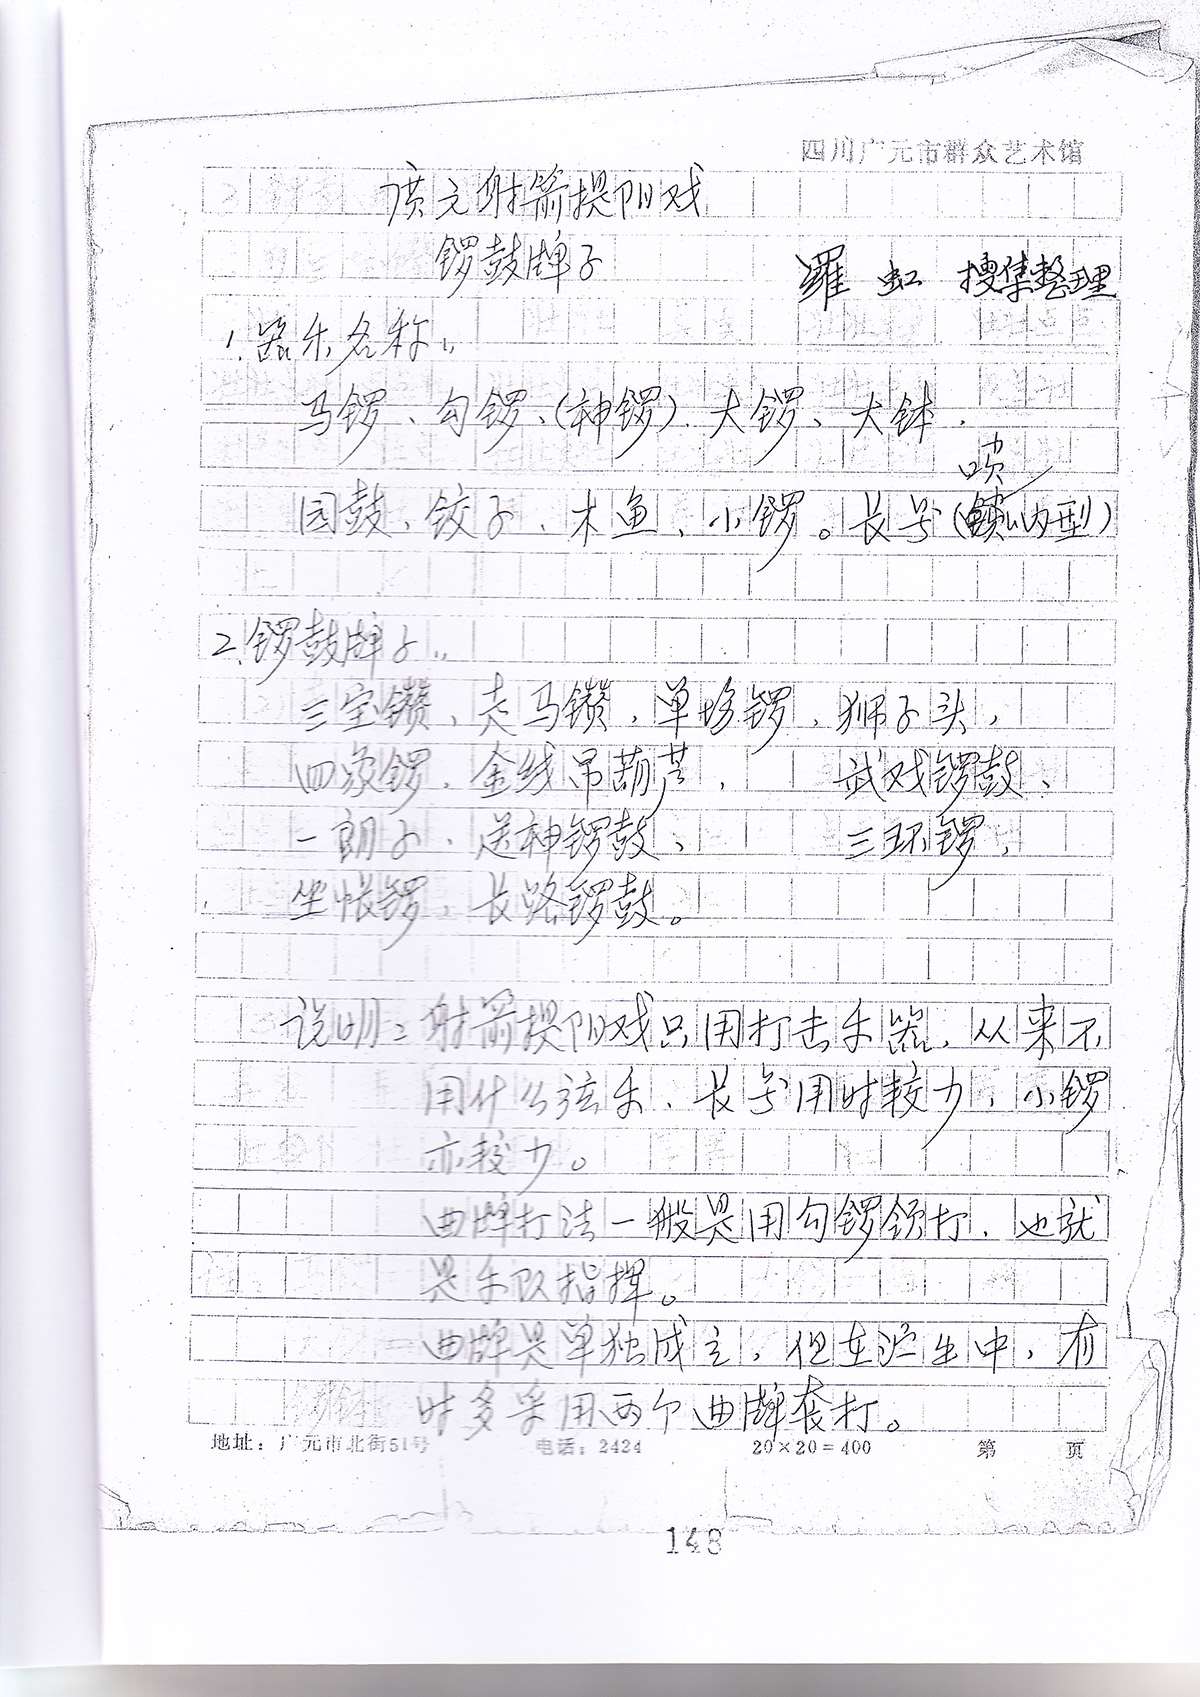 四川广元市群众艺术馆
广元射箭提阳戏
锣鼓牌子
罗虹 搜集整理
1.器乐名称:
马锣、勾锣、(神锣)、大锣、大钵、
园鼓、铰子、木鱼、小锣。长号(唢呐型)
2.锣鼓牌子:
三宝钻、走马钻、单场锣、狮子头、
四象锣、金线吊葫芦、 武戏锣鼓、
一朗子、送神锣鼓、 三环锣、
坐帐锣、长路锣鼓。
说明:射箭提阳戏只用打击乐器、从来不
用什么弦乐、长号用时较少、小锣
亦较少。
曲牌打法一般是用勾锣领打、也就
是乐队指挥。
曲牌是单独成立、但在 中、有
时多采用两个曲牌套打。
地址:广元市北街51号 电话:2424 20×20=400 第 页
148